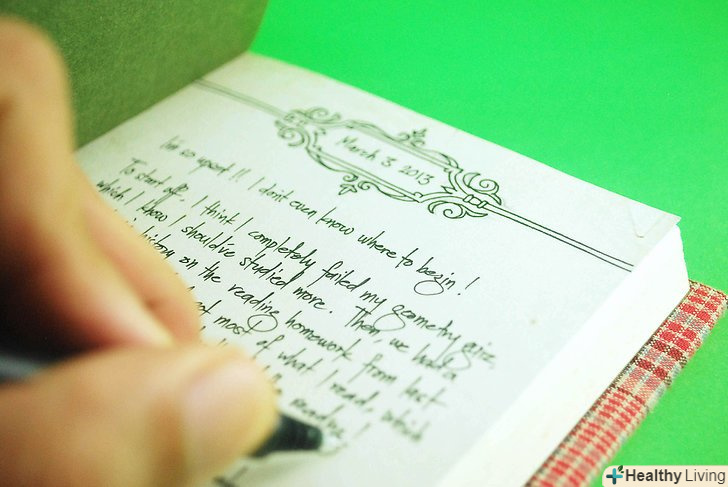 March 3, 2013
I'm so upset!! I don't even know where to begin!
To start off. I think I completely failed my geometry quiz,
which I know I should've studied more. Then, we had a
history on the reading homework from last
most of what I read, which
reading!
Healthy Living